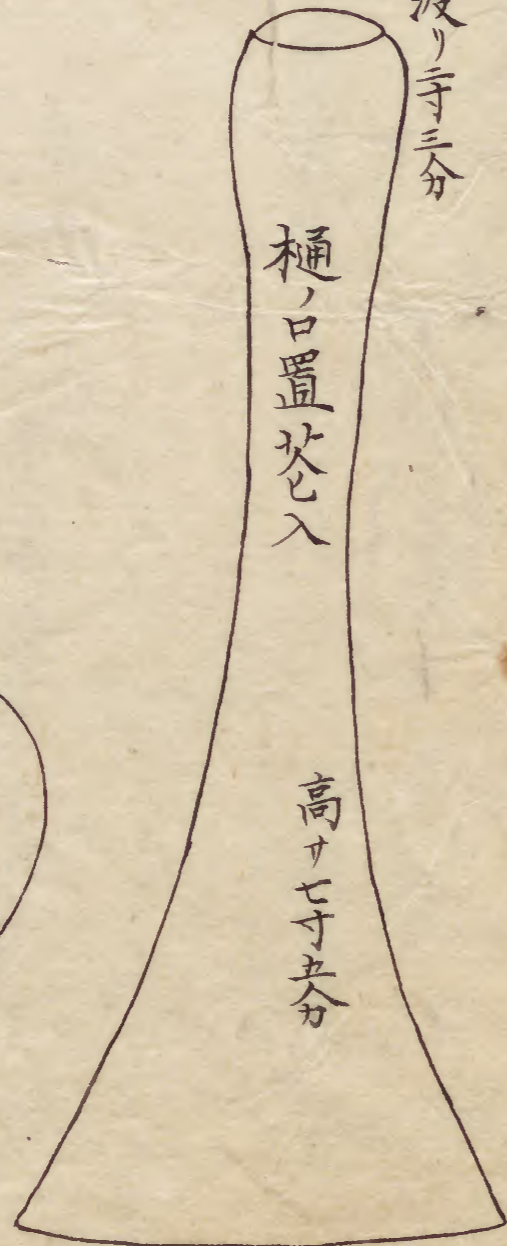 渡リ二寸三分
樋ノ口置炗匕入
高サ七寸五分